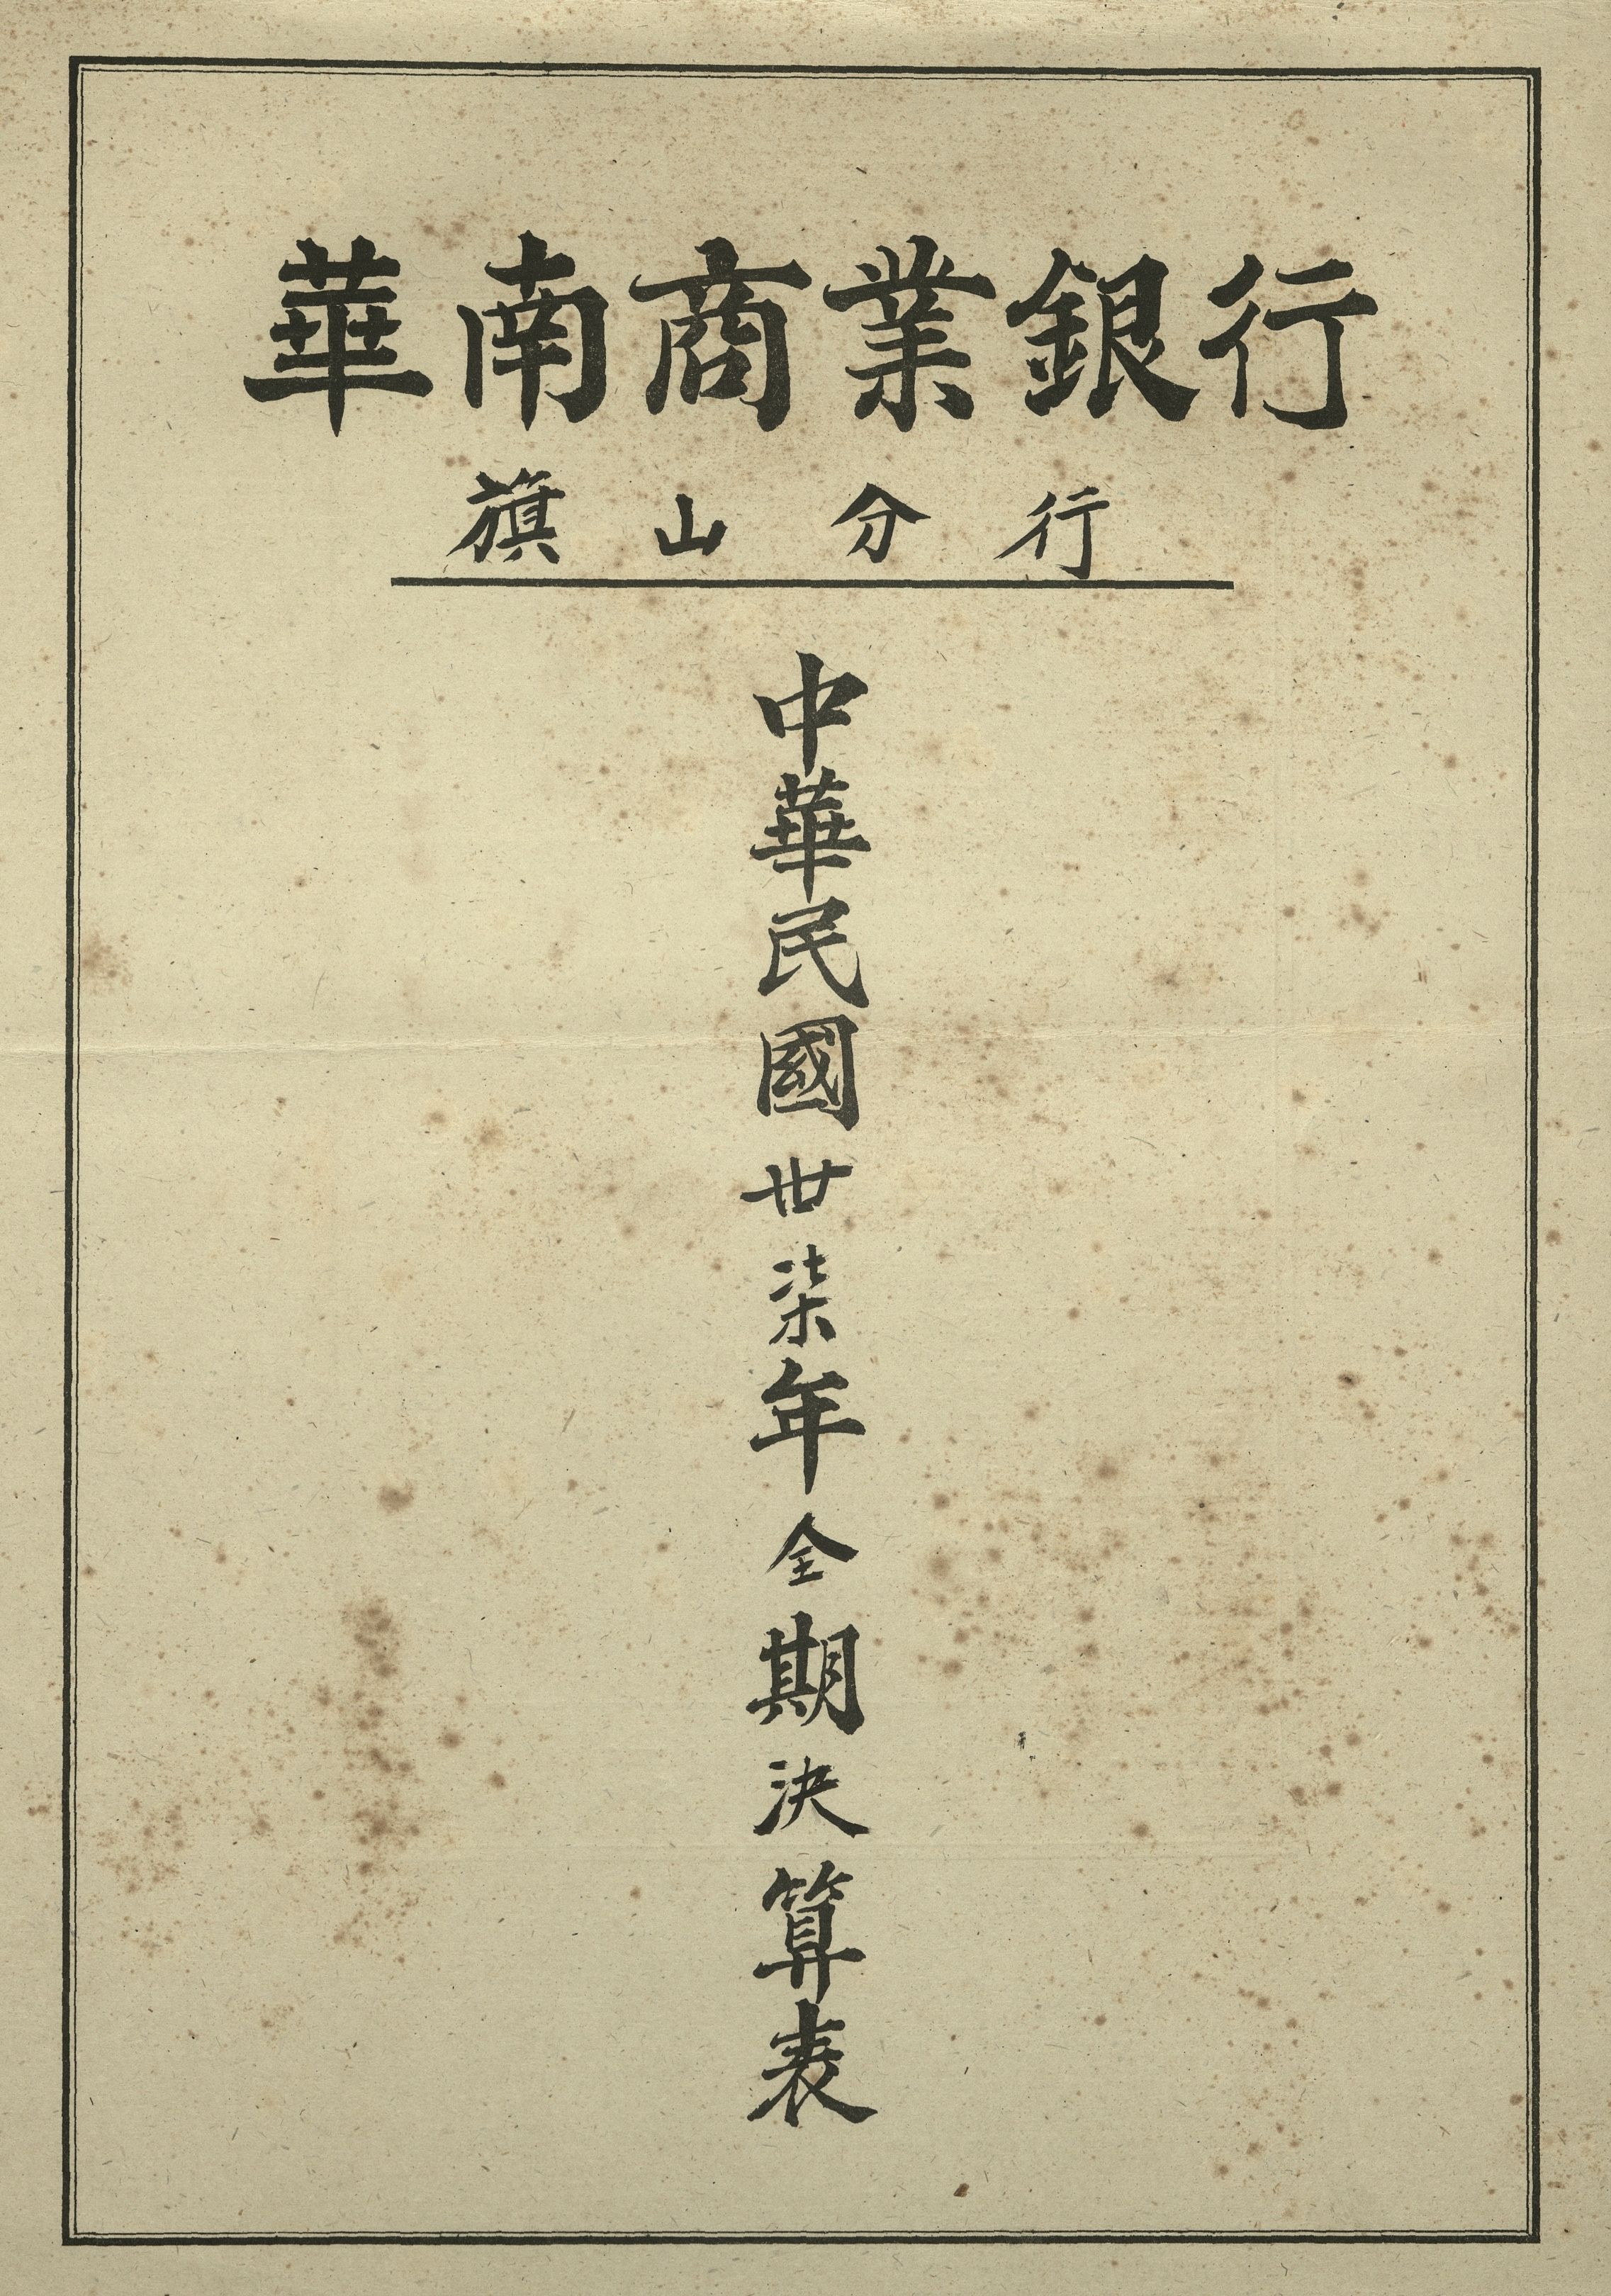 華南商業銀行
旗山分行
中華民國卅柒年全期決算表